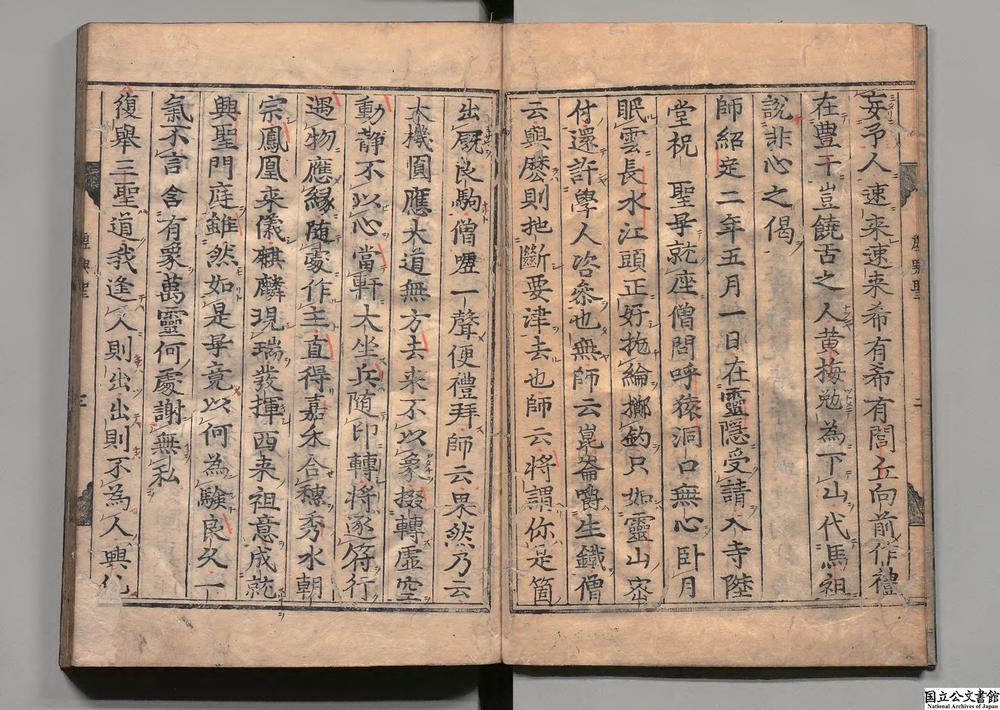 妄予人速來速來希有希有閭丘向前作禮
在豊干豈饒舌之人黄梅勉為下山代馬祖
說非心之偈
師紹定二年五月一日在靈隱受請入寺陞
堂祝聖畢就座僧問呼猿洞口無心臥月
眠雲長水江頭正好抛綸擲釣只如靈山密
付還許學人咨參也無師云崑崙嚼生鐵僧
云與麽則把斷要津去也師云將謂你是箇
出厩良駒僧嘘一聲便禮拜師云果然乃云
大機圓應大道無方去來不以象掇轉虛空
動靜不以心當軒大坐兵随印轉將逐符行
遇物應緣随處作主直得嘉禾合穗秀水朝
宗鳳凰來儀麒麟現瑞發揮西来祖意成就
興聖門庭雖然如是畢竟以何為驗良久一
氣不言含有象萬靈何處謝無私
復舉三聖道我逢人則出出則不為人興化
國立公文書館
National Archives of Japan